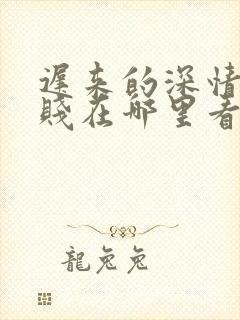 遲来的深情
賤在哪里看
龍兔兔